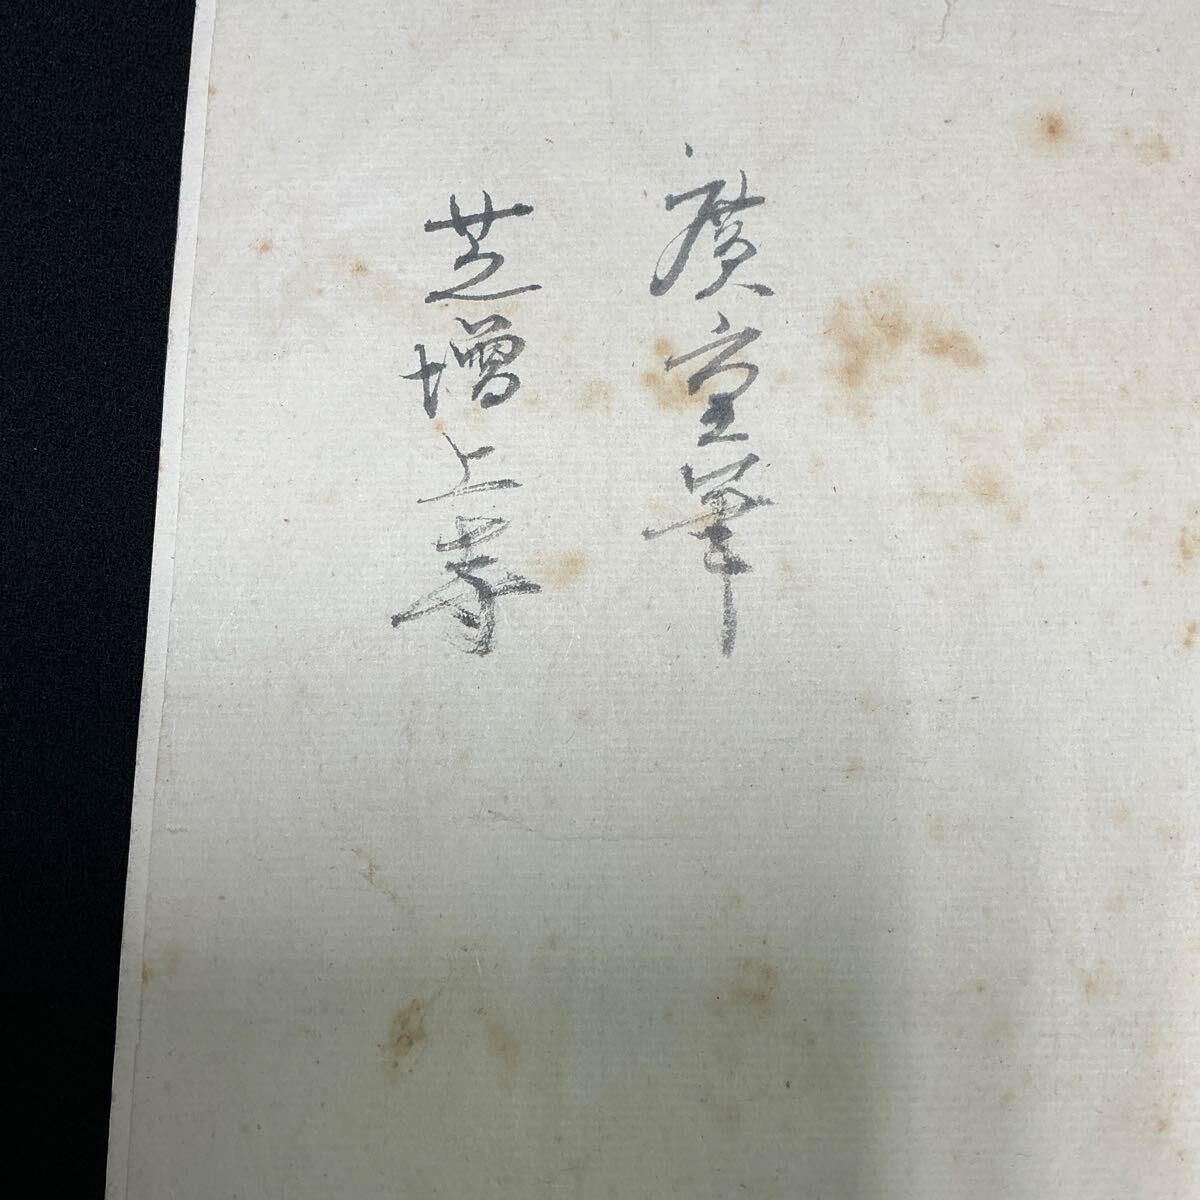 廣重筆
芝増上寺